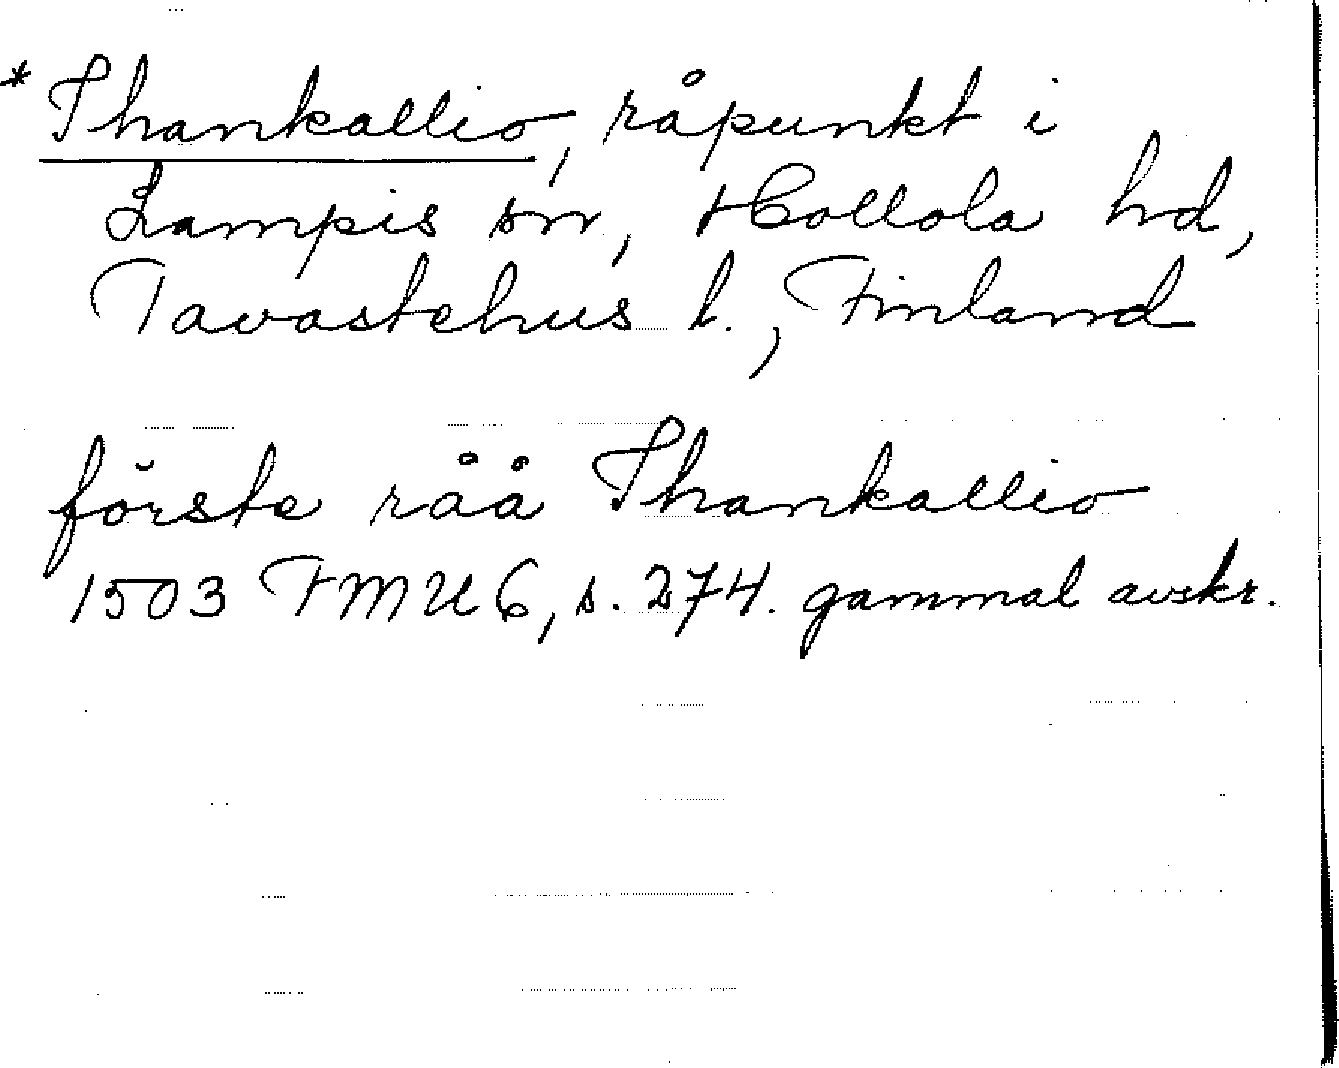 * Thankallio, råpunkt i
Lampis sn, Hollola hd,
Tavastehus l., Finland
förste råå Thankallio
1503 FMU 6, s. 274. gammal avskr.